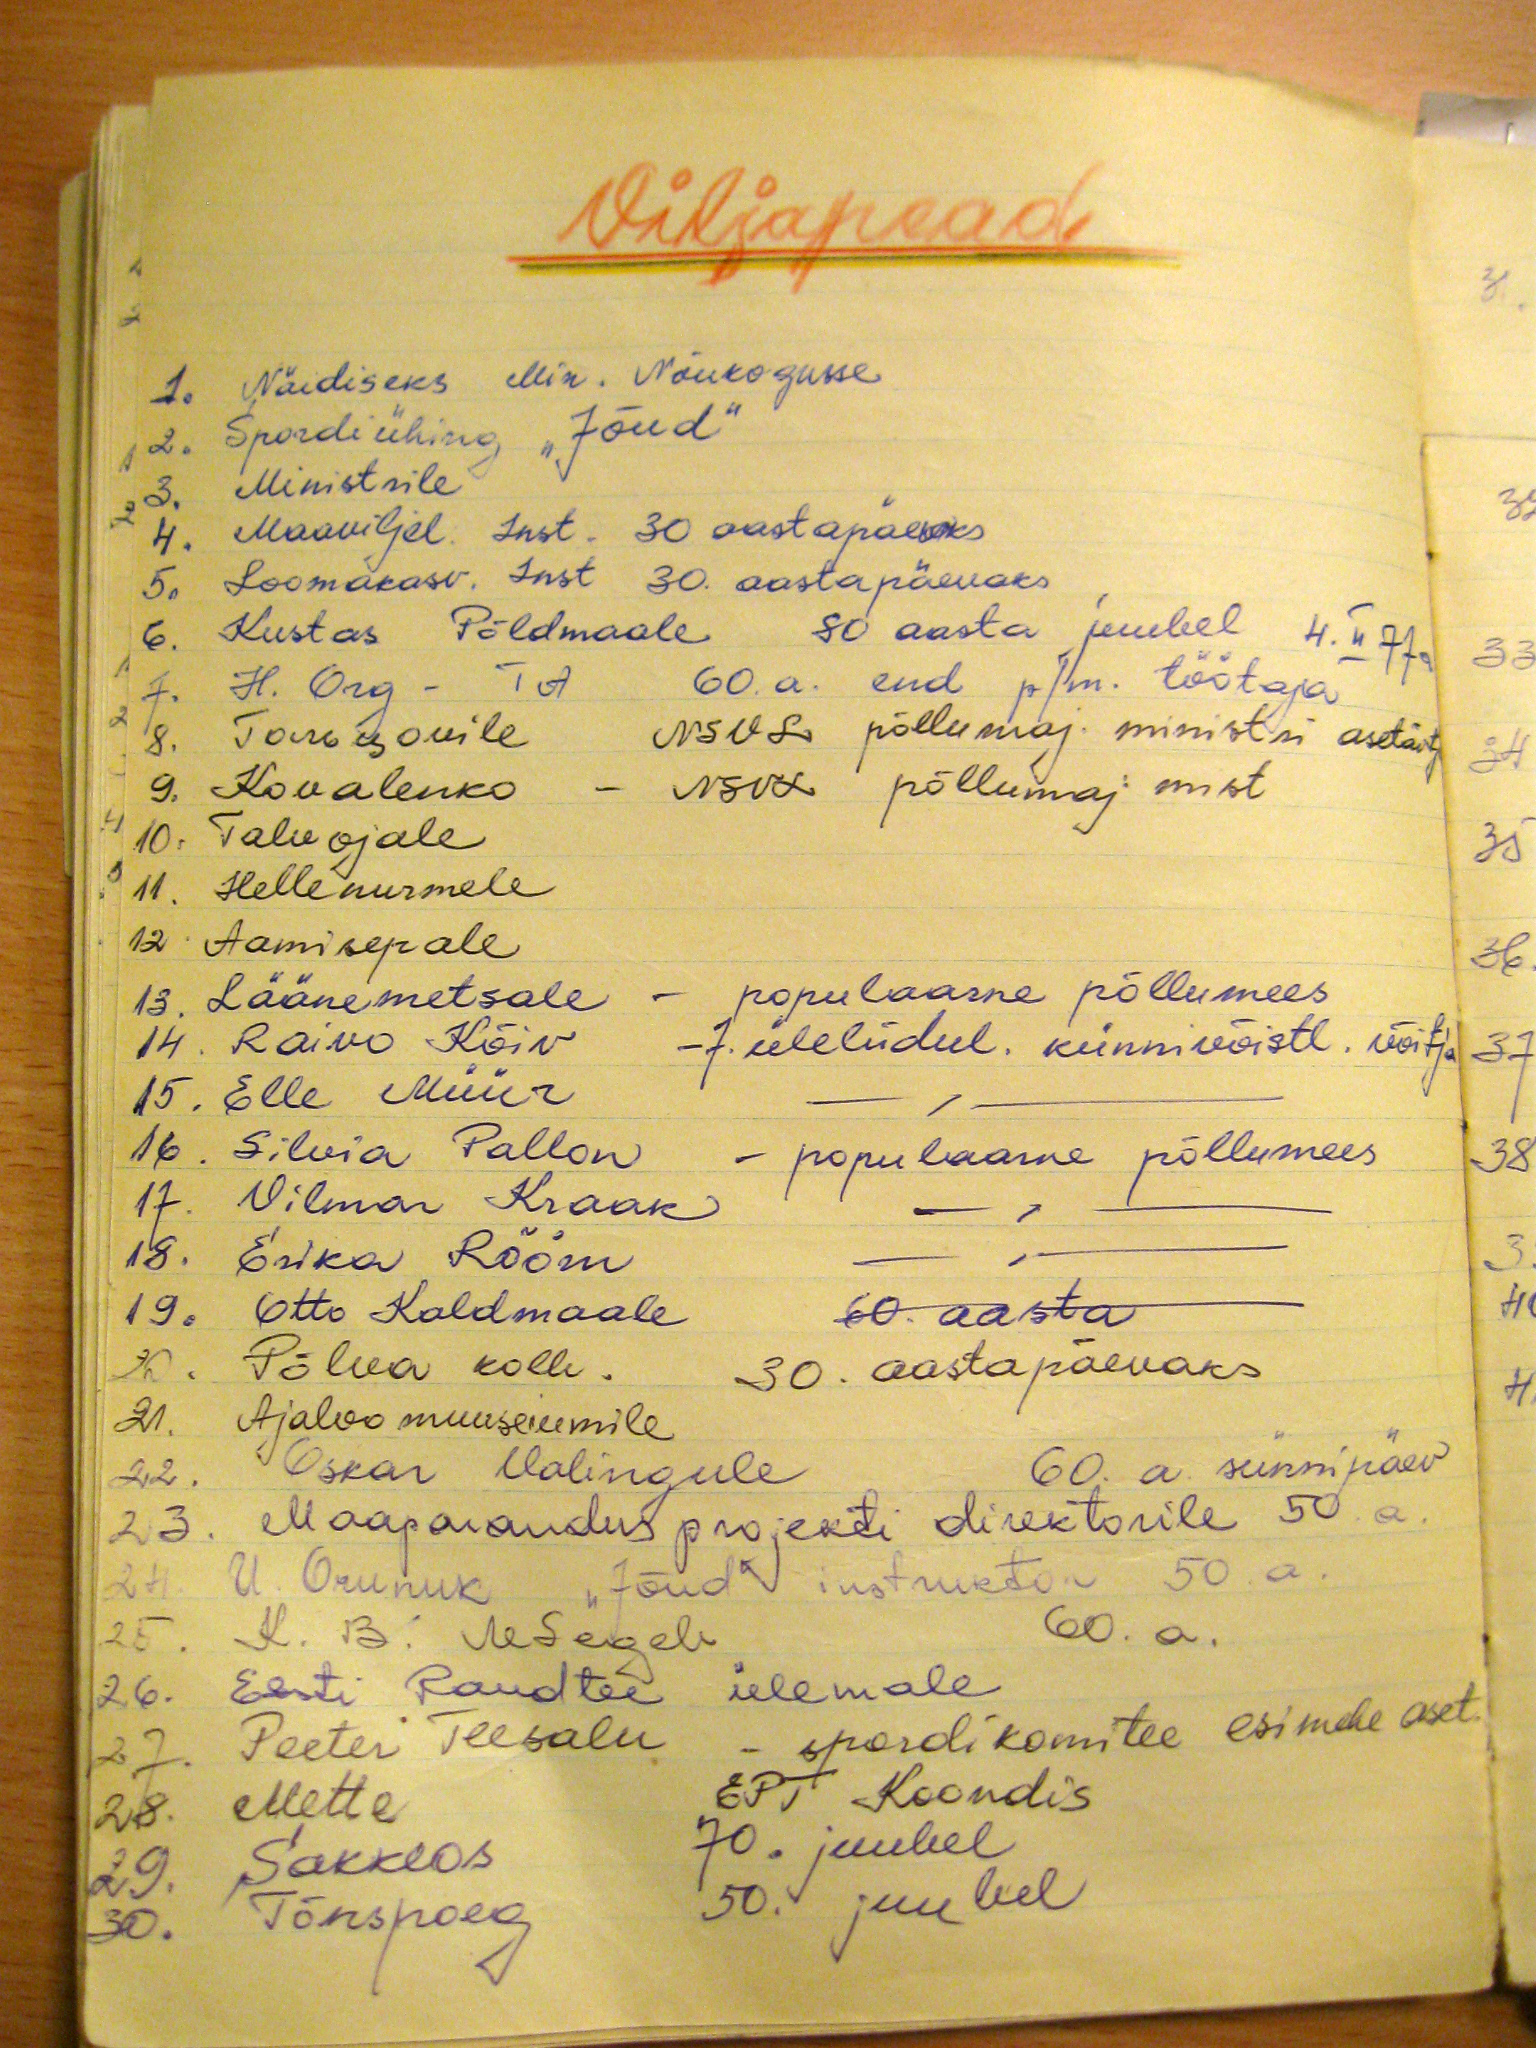 Viljapead
1. Näidiseks Min. Nõukogusse
2. Spordiühing „Jõud"
3. Ministrile
4. Maaviljel. Inst. 30 aastapäevaks
5. Loomakasv. Inst 30. aastapäevaks
6. Kustas Põldmaale 80 aasta juubel 4. II 77a
7. H. Org - TA 60. a. end p/m. töötaja
8. NSVL põllumaj. ministri asetäitj
9. Kovalenko - NSVL põllumaj. mist
10. Talvojale
11. Hellenurmele
12 Aamisepale
13. Läänemetsale - populaarne põllumees
14. Raivo Kõiv - 7. üleliidul. künnivõistl. võitja
15. Elle Müür — , —
16. Silvia Pallon - populaarne põllumees
17. Vilmar Kraak — , —
18. Erika Rõõm — , —
19. Otto Kaldmaale 60. aasta
20. Põlva kolh. 30. aastapäevaks
21. Ajaloomuuseumile
22. Oskar Valingule 60. a. sünnipäev
23. Maaparandusprojekti direktorile 50 a.
24. U. Orunuk „Jõud" instruktor 50. a.
25. K. B. 60. a.
26. Eesti Raudtee ülemale
27. Peeter Teesalu - spordikomitee esimehe aset.
28. Mette EPT Koondis
29. Sakkeos 70. juubel
30. Tõnspoeg 50. juubel
33
34
35
36.
37
38